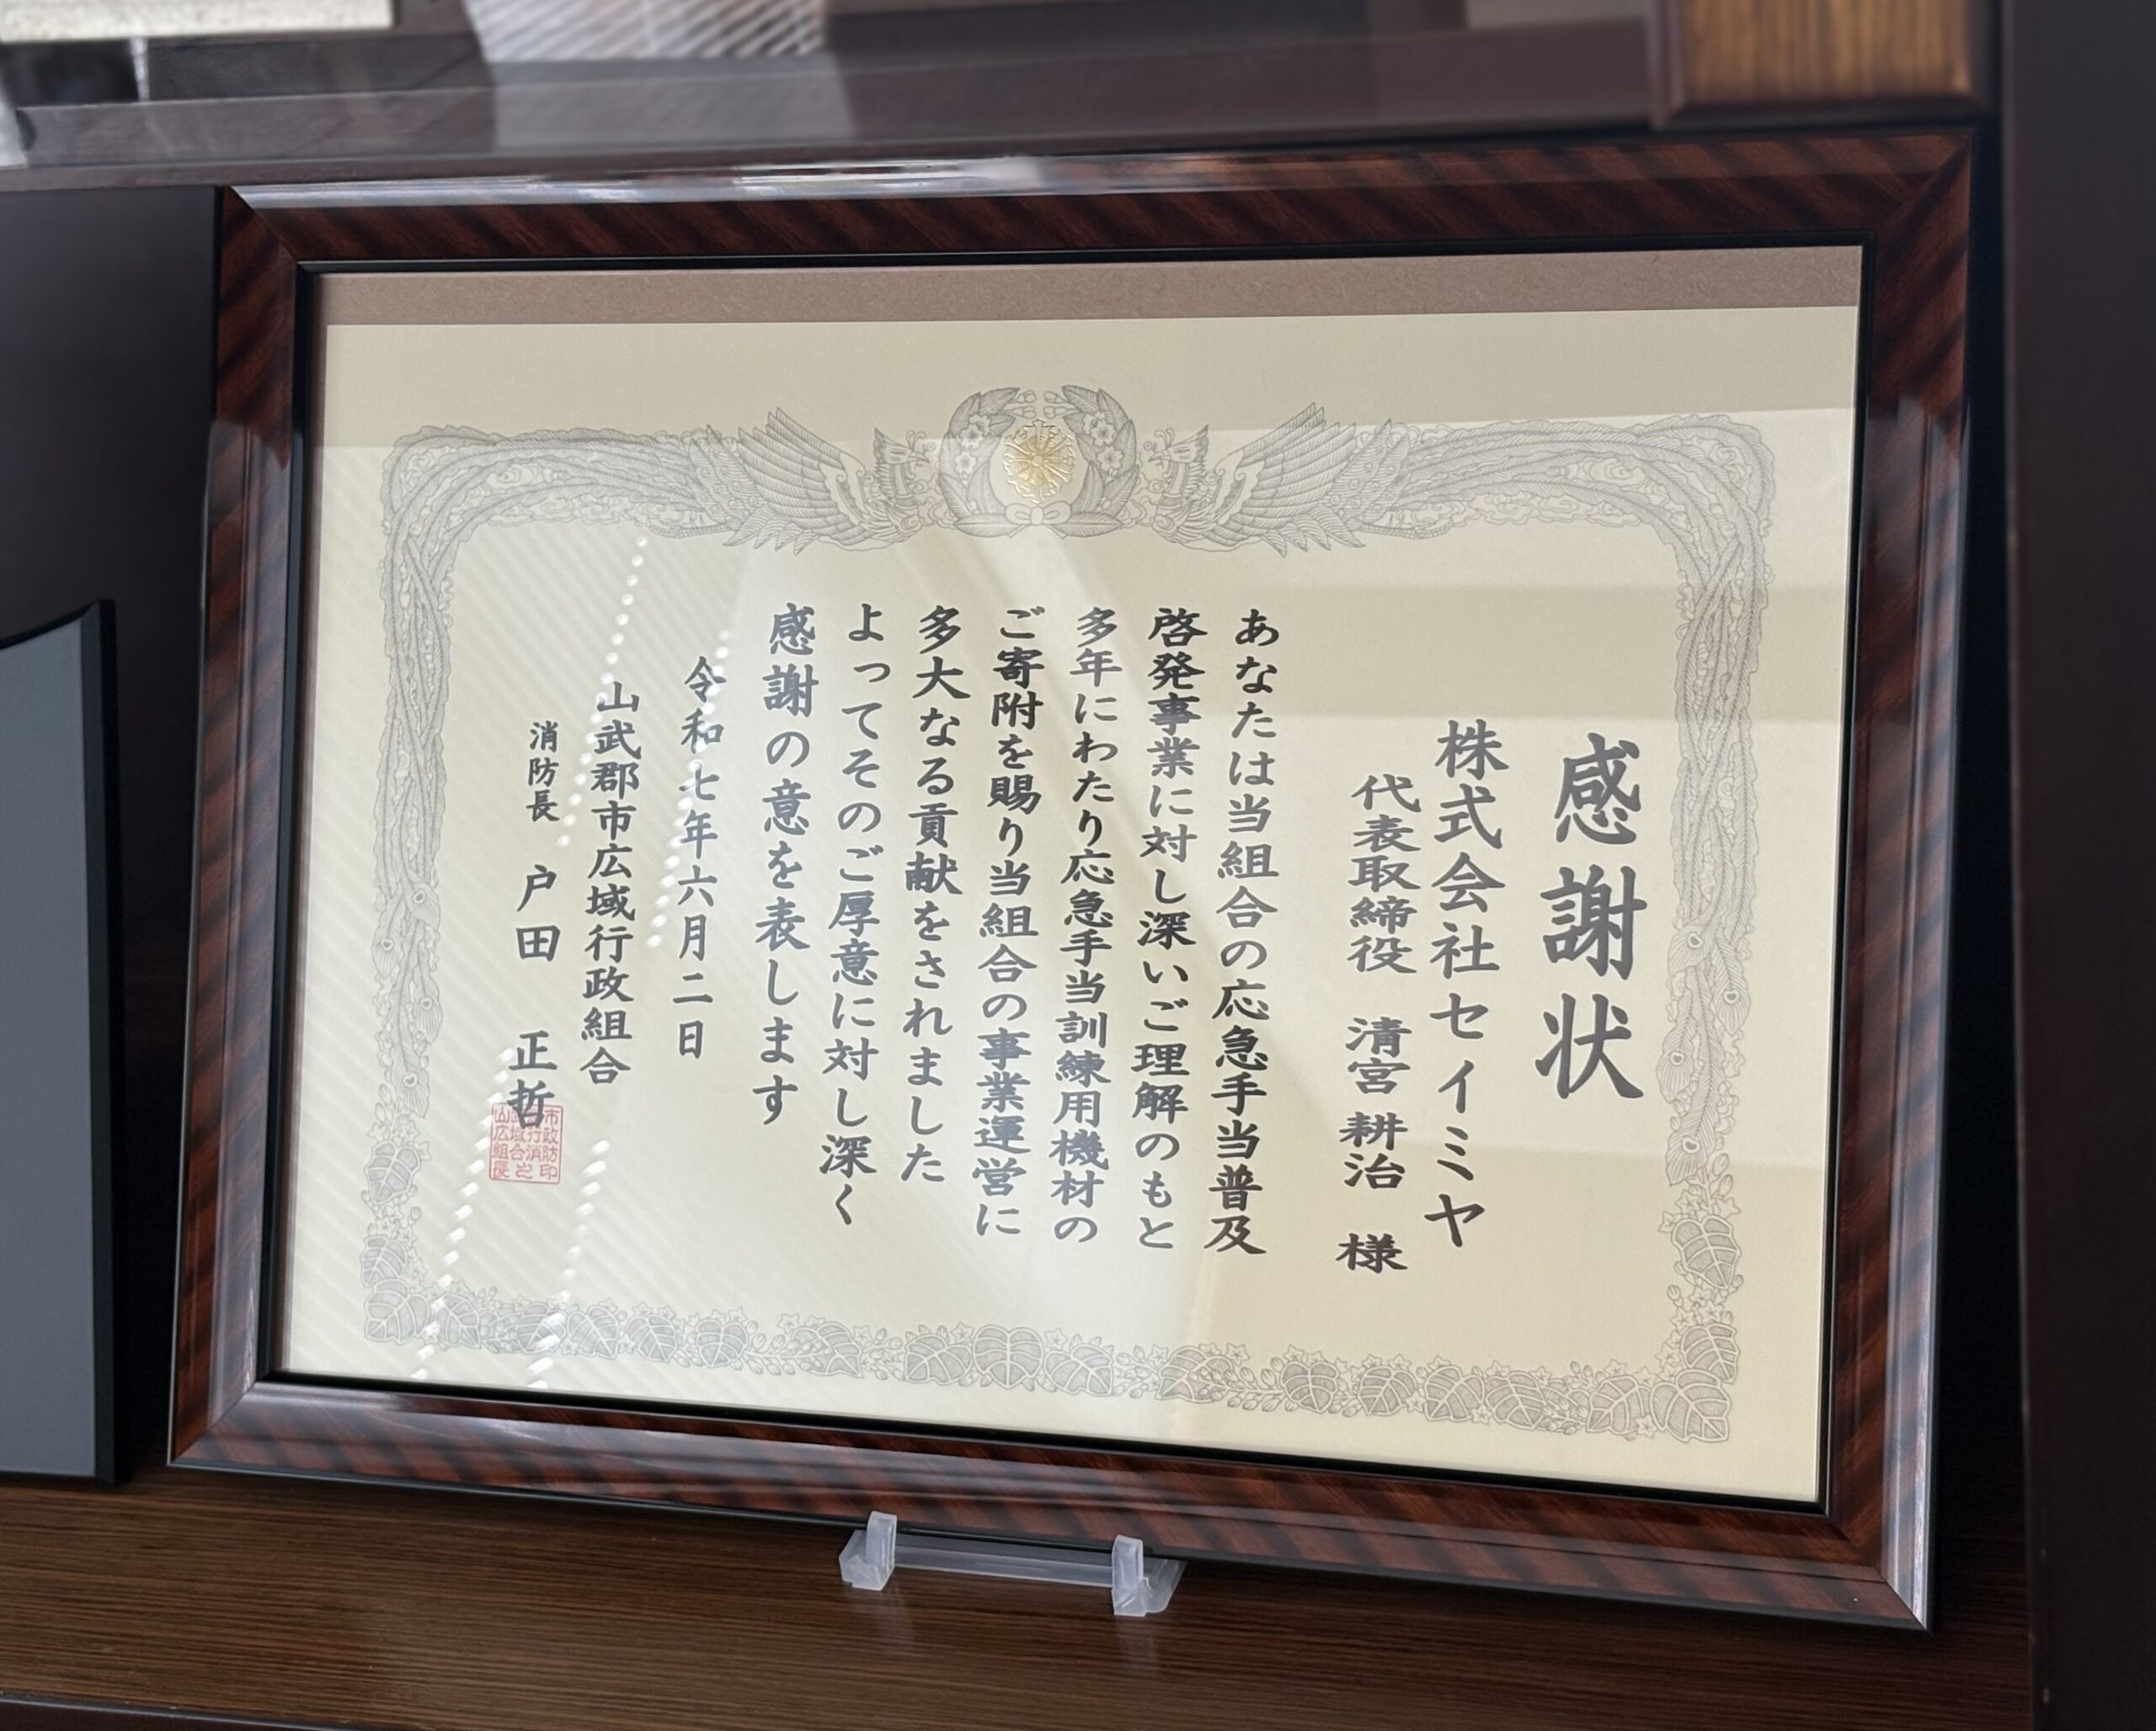 感謝状
株式会社セイミヤ
代表取締役 清宮 耕治 様
あなたは当組合の応急手当普及
啓発事業に対し深いご理解のもと
多年にわたり応急手当訓練用機材の
ご寄附を賜り当組合の事業運営に
多大なる貢献をされました
よってそのご厚意に対し深く
感謝の意を表します
令和七年六月二日
山武郡市広域行政組合
消防長 戸田 正哲